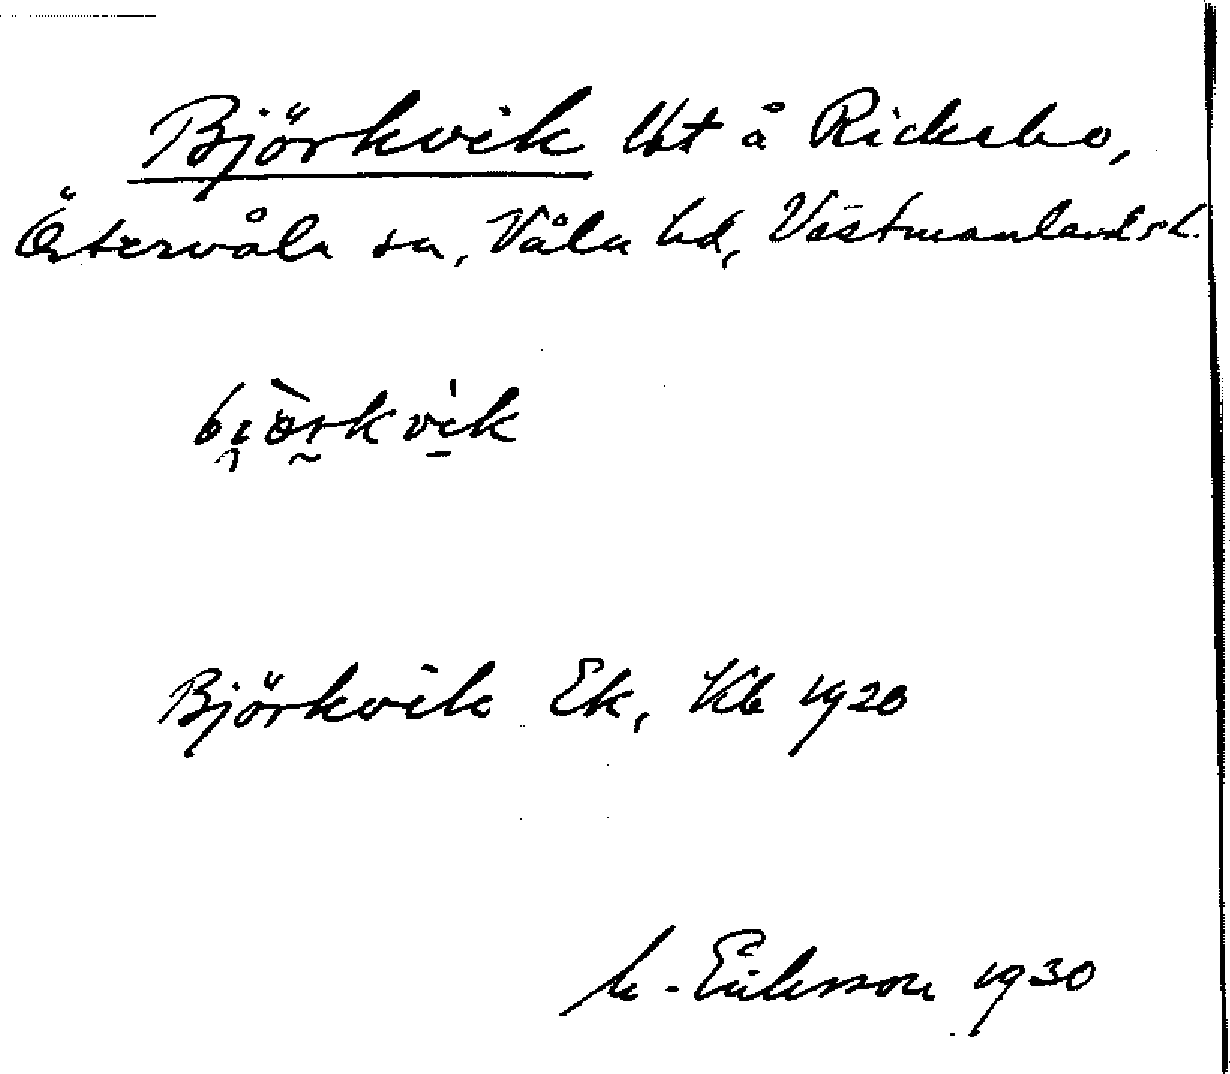 Björkvik lht å Ricksbo,
Östervåla sn, Våla hd, Västmanlands l.
björkvik
Björkvik Ek, Kb 1920
Eriksson 1930